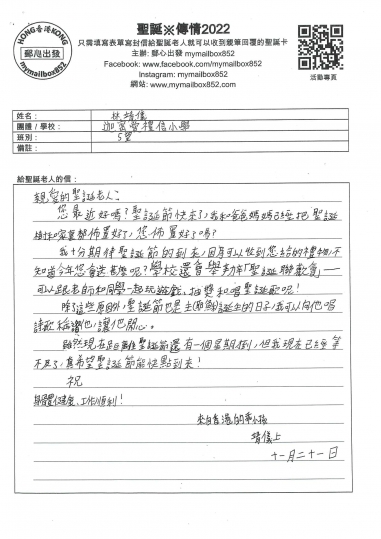 HONG香港KONG
郵心出發
mymailbox852
聖誕※傳情2022
只需填寫表單寫封信給聖誕老人就可以收到親筆回覆的聖誕卡
主辦: 郵心出發 mymailbox852
Facebook: www.facebook.com/mymailbox852
Instagram: mymailbox852
網站: www.mymailbox852.com
活動專頁
姓名:
團體 / 學校:
班別:
備註:
給聖誕老人的信:
親愛的聖誕老人:
您最近好嗎?聖誕節快來了,我和爸爸媽媽已經把聖誕
樹和家裏都佈置好了,您佈置好了嗎?
我十分期待聖誕節的到來,因為可以收到您給的禮物,不
知道今年您會送甚麼呢?學校還會舉辦「聖誕聯歡會」——
可以跟老師和同學一起玩遊戲、抽獎和唱聖誕歌呢!
除了這些原因外,聖誕節也是主耶穌誕生的日子,我可以向他唱
詩歌稱讚他,讓他開心。
雖然現在距離聖誕節還有一個月,但我現在已經等
不及了,真希望聖誕節能快點到來!
祝
身體健康、工作順利!
來自香港的小孩
上
十一月二十一日